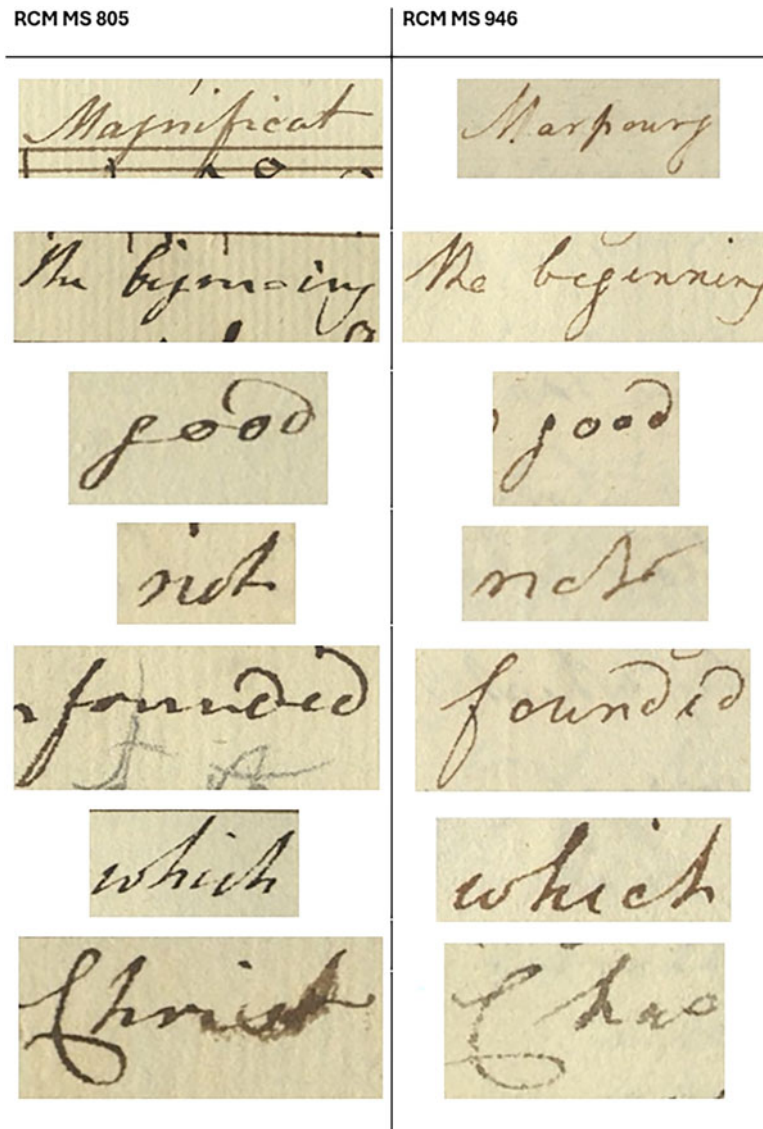 RCM MS 805 RCM MS 946
Magnificat Marpourg
the begin-ing the beginning
good good
not not
founded founded
which which
Christ Chao